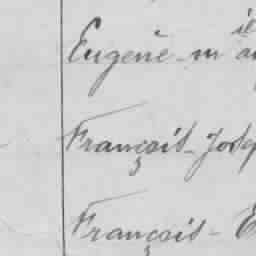 Eugène - m
François - Jos
François - E